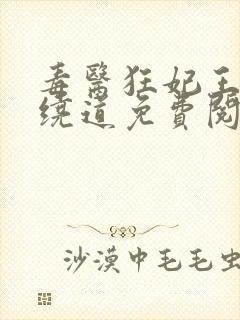 毒醫狂妃王
繞道免費閱
沙漠中毛毛虫